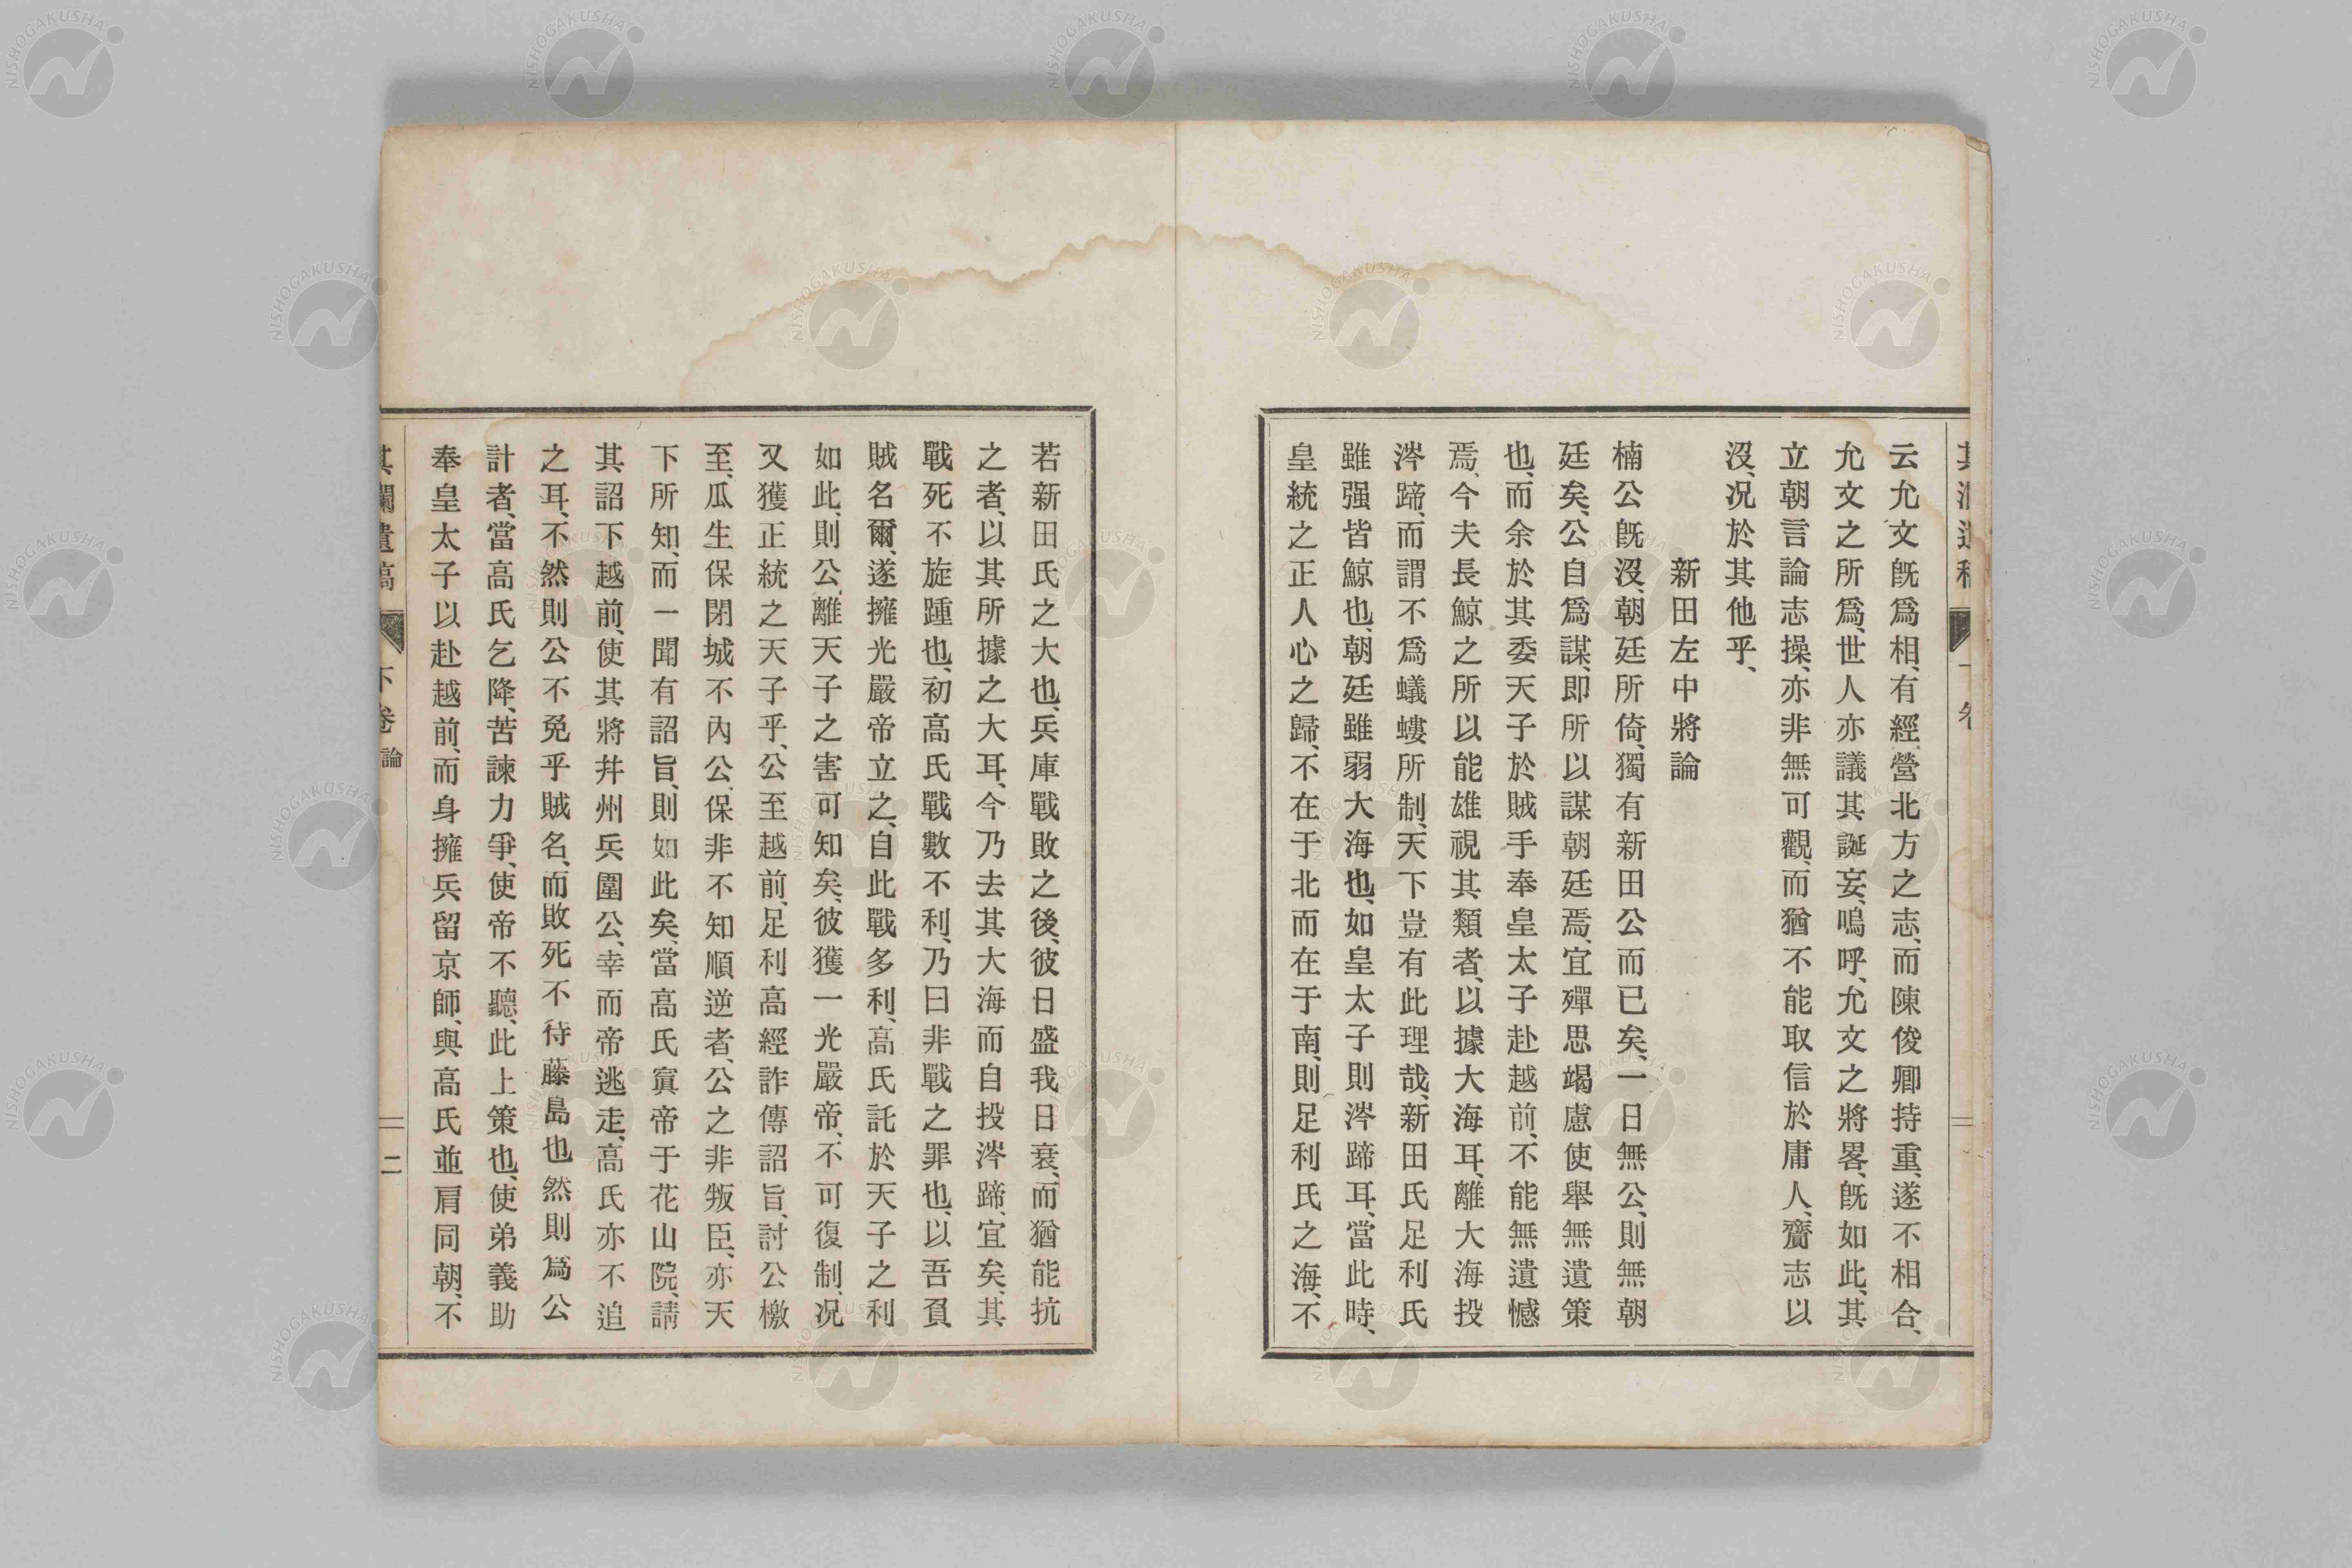 云允文旣爲相、有經營北方之志、而陳俊卿持重、遂不相合、
允文之所爲、世人亦議其誕妄、嗚呼、允文之將畧、旣如此、其
立朝言論志操、亦非無可觀、而猶不能取信於庸人、齎志以
沒、况於其他乎、
新田左中將論
楠公旣沒、朝廷所倚、獨有新田公而已矣、一日無公、則無朝
廷矣、公自爲謀、即所以謀朝廷焉、宜殫思竭慮使擧無遺策
也、而余於其委天子於賊手奉皇太子赴越前、不能無遺憾
焉、今夫長鯨之所以能雄視其類者、以據大海耳、離大海投
涔蹄、而謂不爲蟻螻所制、天下豈有此理哉、新田氏足利氏
雖强皆鯨也、朝廷雖弱大海也、如皇太子則涔蹄耳、當此時、
皇統之正人心之歸、不在于北而在于南、則足利氏之海、不
若新田氏之大也、兵庫戰敗之後、彼日盛我日衰、而猶能抗
之者、以其所據之大耳、今乃去其大海而自投涔蹄、宜矣、其
戰死不旋踵也、初高氏戰數不利、乃曰非戰之罪也、以吾負
賊名爾、遂擁光嚴帝立之、自此戰多利、高氏託於天子之利
如此、則公離天子之害可知矣、彼獲一光嚴帝、不可復制、况
又獲正統之天子乎、公至越前、足利高經詐傳詔旨、討公檄
至、瓜生保閉城不內公、保非不知順逆者、公之非叛臣、亦天
下所知、而一聞有詔旨、則如此矣、當高氏寘帝于花山院、請
其詔下越前、使其將幷州兵圍公、幸而帝逃走、高氏亦不追
之耳、不然則公不免乎賊名、而敗死不待藤島也然則爲公
計者、當高氏乞降、苦諫力爭、使帝不聽、此上策也、使弟義助
奉皇太子以赴越前、而身擁兵留京師、與高氏並肩同朝、不
下卷 論
二